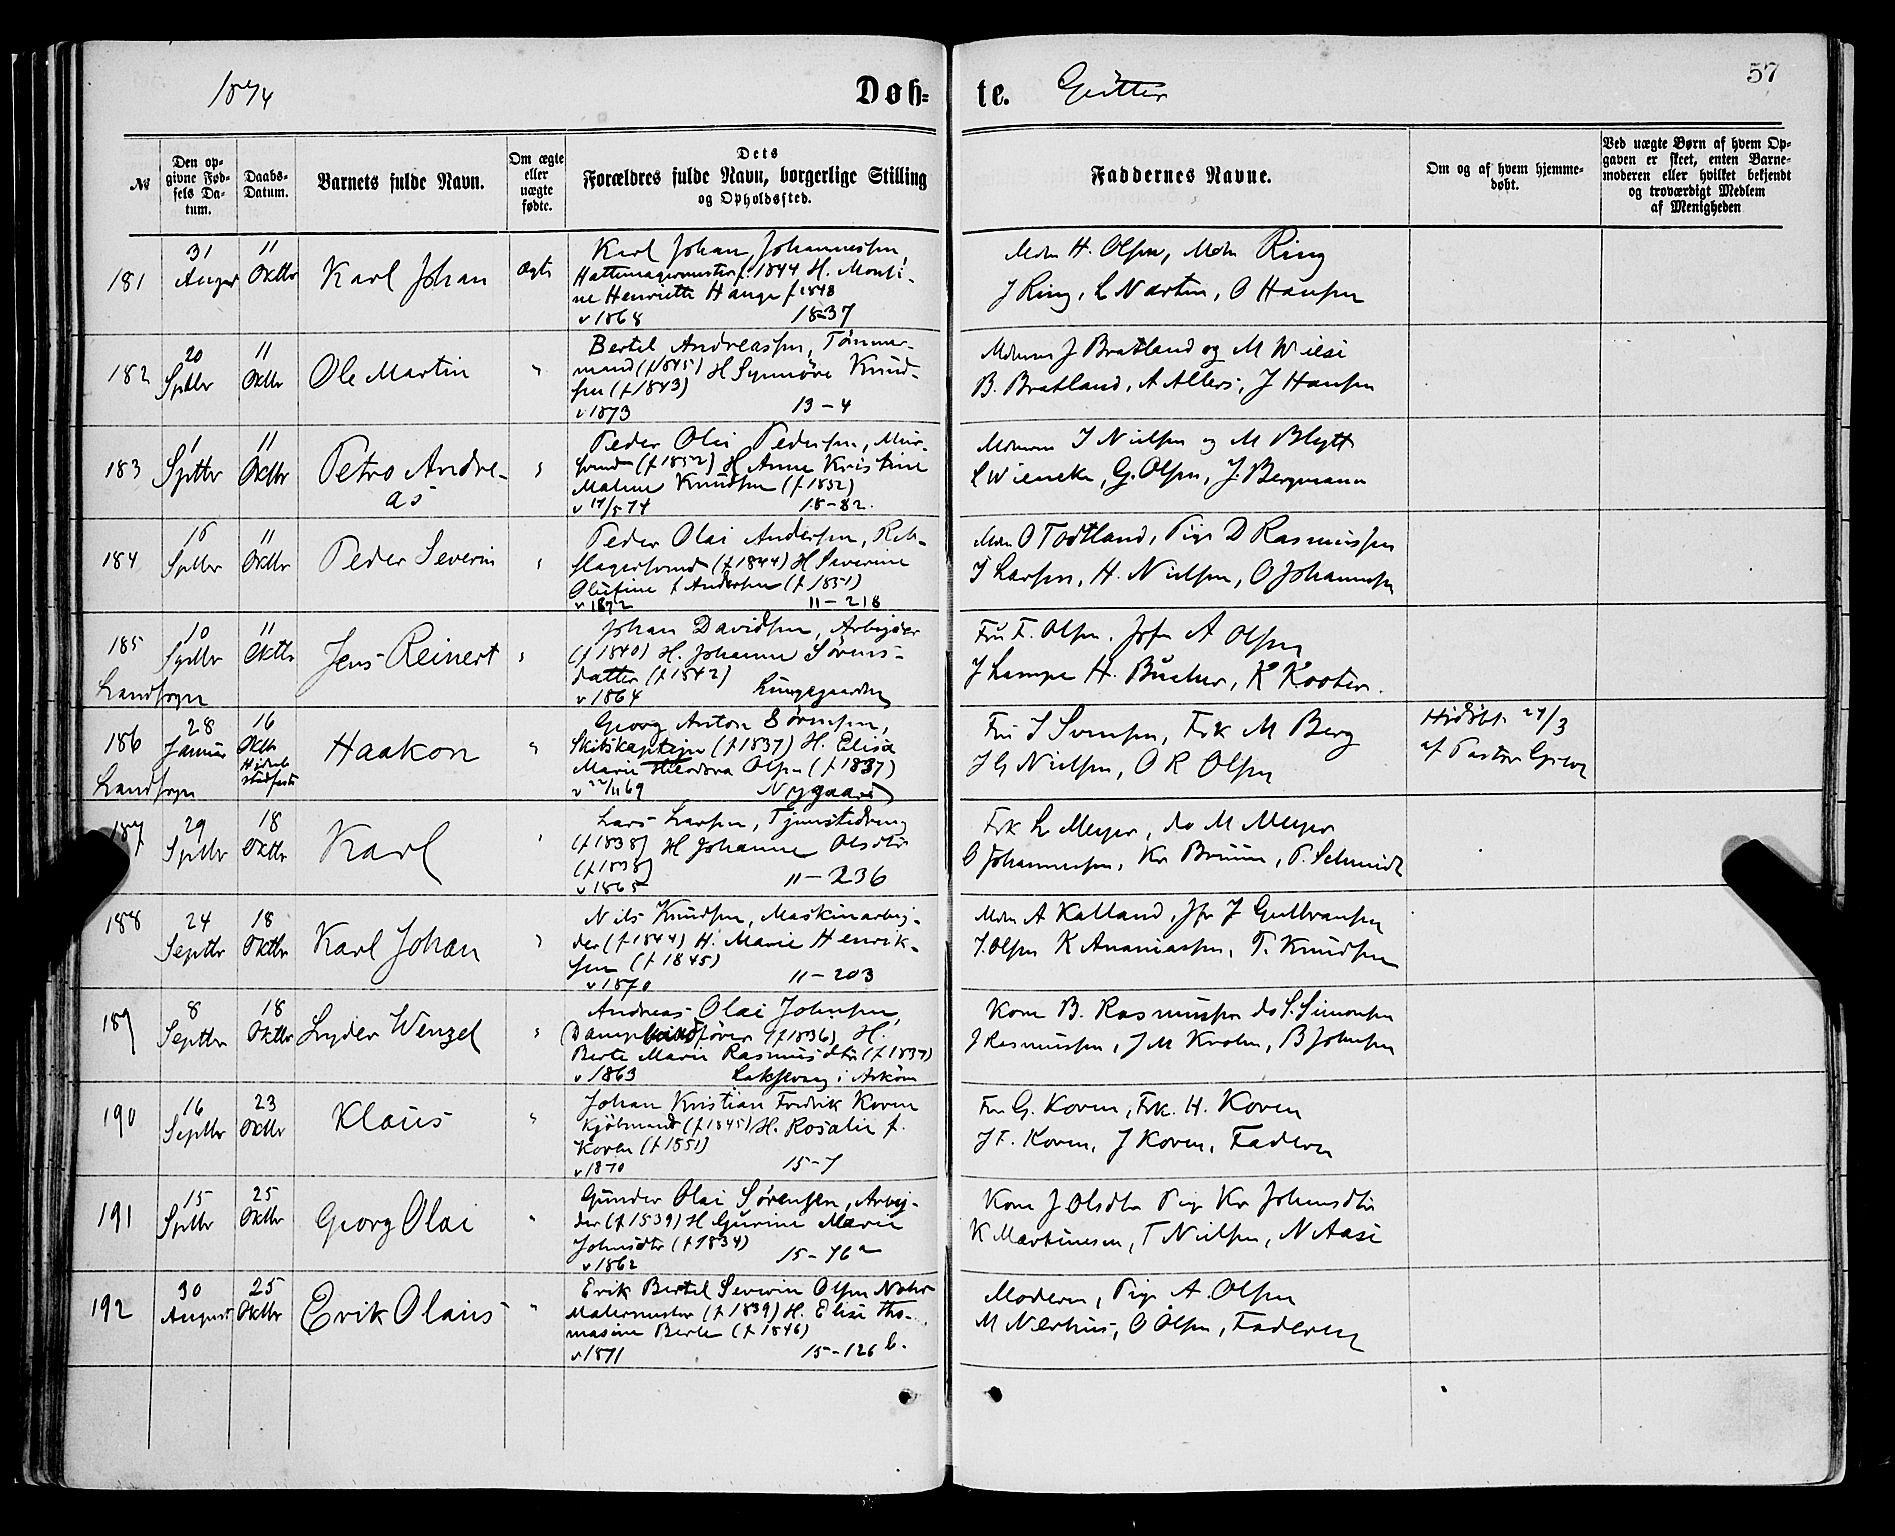 1874
Døb=
te.
Gutter
57
№
Den op-
givne Fød-
sels Da-
tum.
Daabs-
Datum.
Barnets fulde Navn.
Om ægte
eller
uægte
fødte.
Dets
Forældres fulde Navn, borgerlige Stilling
og Opholdssted.
Faddernes Navne.
Om og af hvem hjemme-
døbt.
Ved uægte Børn af hvem Op-
gaven er skeet, enten Barne-
moderen eller hvilket bekjendt
og troværdigt Medlem
af Menigheden
181
31
August
11
Oktbr
Karl Johan
Ægte
Karl Johan Johannessen,
Hattemagermester f. 1844 H. Monti-
ne Henriette Hauge f 1848
v 1868 18-37
Mdm H. Olsen, Mdm Ring
J Ring, L Næsten, O Hansen
182
20
Sptbr
11
Oktbr
Ole Martin
"
Bertel Andreassen, Tømmer-
mand (f 1845) H Synnøve Knud-
sen (f 1843)
v 1873 13-4
Mdmm J Bratland og M Wiese
B. Bratland, A Allers, J Hansen
183
1
Sptbr
11
Oktbr
Petro Andre-
as
"
Peder Olai Pedersen, Mur-
svend (f 1852) H Anne Kristine
Malene Knudsen (f 1852)
v 17/5 74 18-82.
Mdmm J Nielsen og M Blytt
L Wieneke, G. Olsen, J. Bergmann
184
16
Sptbr
11
Oktbr
Peder Severin
"
Peder Olai Andersen, Reb-
slagersvend (f 1844) H Severine
Olufine f Andersen (f 1851)
v 1872 11-218
Mdm O Todtland, Pige D Rasmussen
J Larsen, H. Nielsen, O Johannesen
185
Landsogn
10
Sptbr
11
Oktbr
Jens Reinert
"
Johan Davidsen, Arbeider
(f 1840) H. Johanne Sørens-
datter (f 1842)
v 1864 Lungegaarden
Fru F. Olsen. Jfr A Olsen
J Lampe H. Bucher, K Kooter.
186
Landsogn
28
Januar
16
Oktb
Haakon
"
Georg Anton Sørensen,
Skibskaptejn (f 1837) H. Elisa
Marie Theodora Olsen (f 1837)
v 22/11 69 Nygaard
Fru J Svensen, Frk M Berg
J G Nielsen, O R Olsen
Hjdøbt. 27/3
af Pastor
187
29
Sptbr
18
Oktbr
Karl
"
Lars Larsen, Tjenestedreng
(f 1838) H Johanne Olsdtr
(f 1838)
v 1865 11-236
Frk L Meyer, do M Meyer
O Johannesen, Kr Bruun, P. Schmidt
188
24
Septbr
18
Oktbr
Karl Johan
"
Nils Knudsen, Maskinarbej-
der (f 1844) H. Marie Henrik-
sen (f 1845)
v 1870 11-203
Mdm A Kalland, Jfr J Gulbransen
J. Olsen K Ananiassen, T. Knudsen
189
8
Septbr
18
Oktbr
Lyder Wenzel
"
Andreas Olai Johnsen,
(f 1836) H.
Berte Marie Rasmusdtr (f 1837)
v 1863 Laksevaag i Askøen
Kone B. Rasmussen do S. Simonsen
J Rasmussen, J M Krohn, B Johnsen
190
16
Septbr
23
Oktbr
Klaus
"
Johan Kristian Fredrik Koren
Kjøbmand (f 1845) H. Rosalie f.
Koren (f 1851)
v 1870 15-7
Fru G. Koren, Frk. H. Koren
J F. Koren, J Koren, Faderen
191
15
Sptbr
25
Oktbr
Georg Olai
"
Gunder Olai Sørensen, Arbej-
der (f 1839) H Gurine Marie
Johnsdtr (f 1834)
v 1862 15-76a
Kone J Olsdtr Pige Kr Johnsdtr
K Martinesen, T Nielsen, N Aase
192
30
August
25
Oktbr
Erik Olaus
"
Erik Bertel Severin Olsen
Malermester (f 1839) H. Elise Tho-
masine Berle (f 1846)
v 1871 15-126 b.
Moderen, Pige A. Olsen
M Nerhus, O Olsen, Faderen